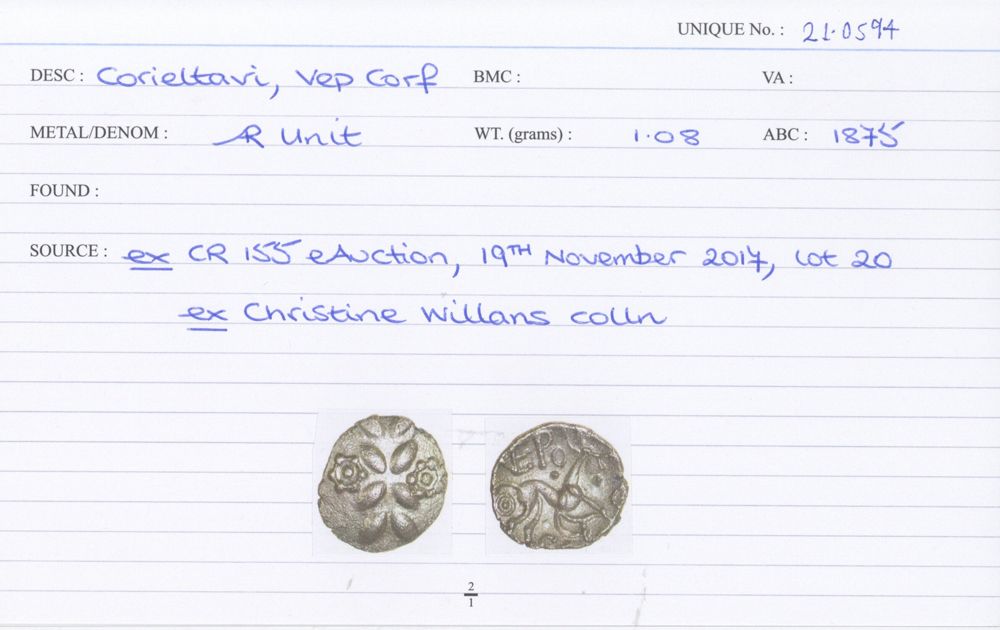 UNIQUE No. : 21.0594
DESC : Corieltavi, Vep Corf BMC : VA :
METAL/DENOM : AR Unit WT. (grams) : 1.08 ABC : 1875
FOUND :
SOURCE : ex CR 155 eAuction, 19TH November 2017, lot 20
ex Christine Willans colln
EP
2
1